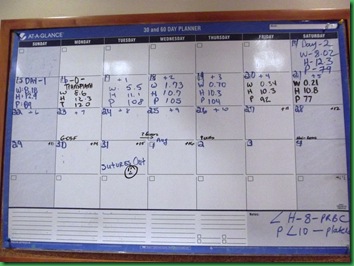 AT-A-GLANCE
30 and 60 DAY PLANNER
SUNDAY MONDAY TUESDAY WEDNESDAY THURSDAY FRIDAY SATURDAY
14 Day-2
W-8.02
H-12.3
P-79
15 DAY-1
W-8.18
P-89
16 -0-
W 8.6
H 12.3
P 120
17 +1
W 5.5
H 12.1
P 108
18 +2
W 1.73
H 10.7
P 105
19 +3
W 0.70
H 10.3
P 109
20 +4
W 0.34
H 10.3
P 92
21 +5
W 0.21
H 10.8
P 77
22 +6
23 +7
24 +8
25 +9
26 +10
27
28
G-CSF
29
30
31
SUTURES OUT
Aug
2
3
4
NOTES
< H-8-PRBC
P < 10 -